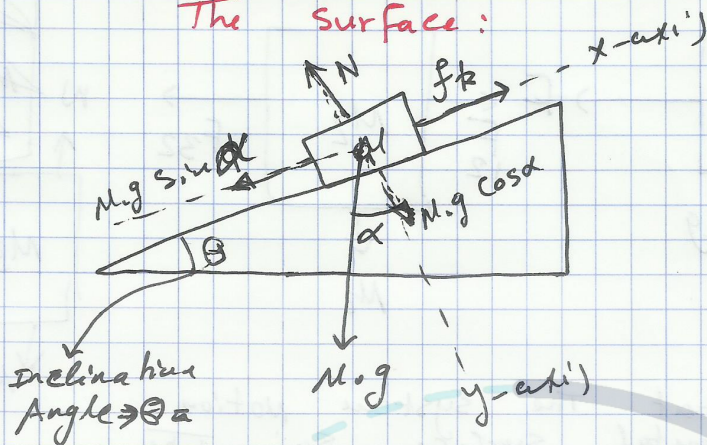 The Surface:
x-axis
N
fk
M
M.g sin α
M.g cosα
α
θ
Inclination
Angle ⇒ θ =
M.g
y-axis